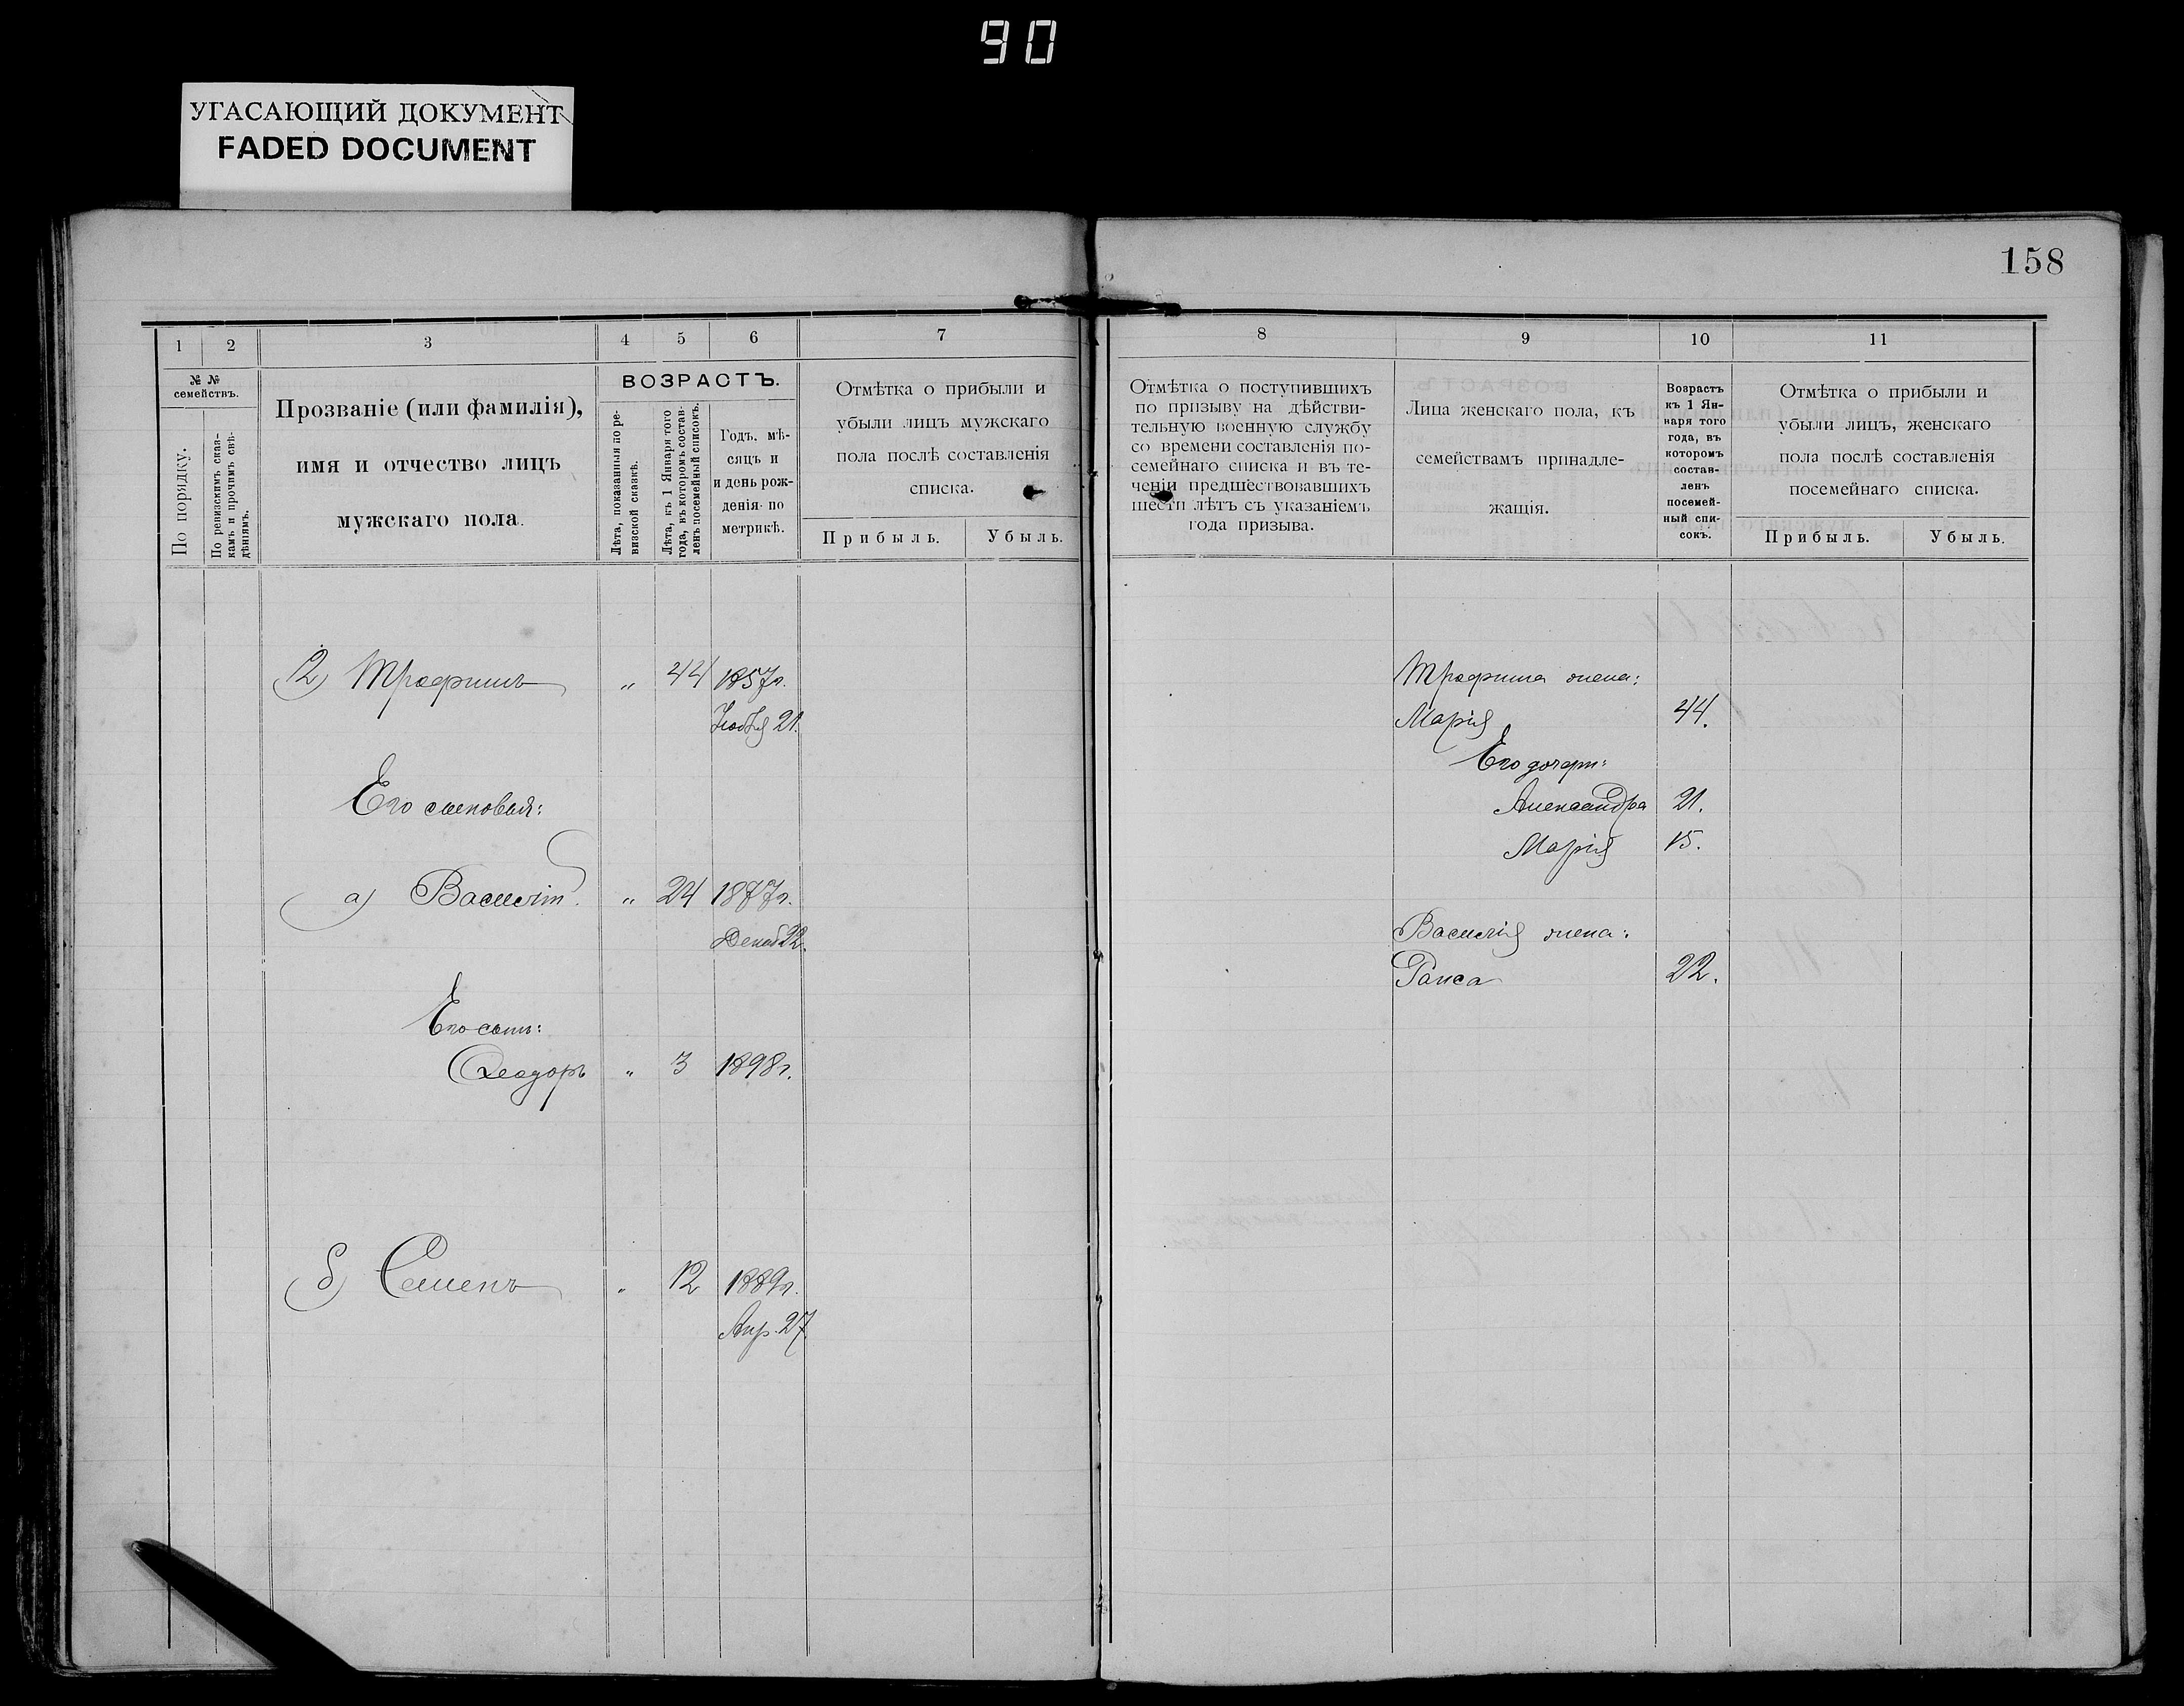 90
УГАСАЮЩИЙ ДОКУМЕНТ
FADED DOCUMENT
158
1 2 3 4 5 6 7
№ №
семействъ.
По порядку.
По ревизскимъ сказкамъ и прочимъ свѣдѣніямъ.
Прозваніе (или фамилія),
имя и отчество лицъ
мужскаго пола.
ВОЗРАСТЪ.
Лѣта, показанныя по ревизской сказкѣ.
Лѣта, къ 1 Января того года, въ которомъ составленъ посемейный списокъ.
Годъ, мѣ-
сяцъ и
и день рож-
денія по
метрикѣ.
Отмѣтка о прибыли и
убыли лицъ мужскаго
пола послѣ составленія
списка.
Прибыль. Убыль.
12) Трофимъ „ 44 1857г.
21.
Его сыновья:
а) Василій „ 24 1877г.
Декаб 22.
Его сынъ:
Ѳеодоръ „ 3 1898г.
б) Семенъ „ 12 1889г.
Апр. 27.
8 9 10 11
Отмѣтка о поступившихъ
по призыву на дѣйстви-
тельную военную службу
со времени составленія по-
семейнаго списка и въ те-
ченіи предшествовавшихъ
шести лѣтъ съ указаніемъ
года призыва.
Лица женскаго пола, къ
семействамъ принадле-
жащія.
Возрастъ
къ 1 Ян-
варя того
года, въ
которомъ
состав-
ленъ
посемей-
ный спи-
сокъ.
Отмѣтка о прибыли и
убыли лицъ, женскаго
пола послѣ составленія
посемейнаго списка.
Прибыль. Убыль.
Трофима жена:
Марія 44.
Его дочери:
Александра 21.
Марія 15.
Василія жена:
Раиса 22.